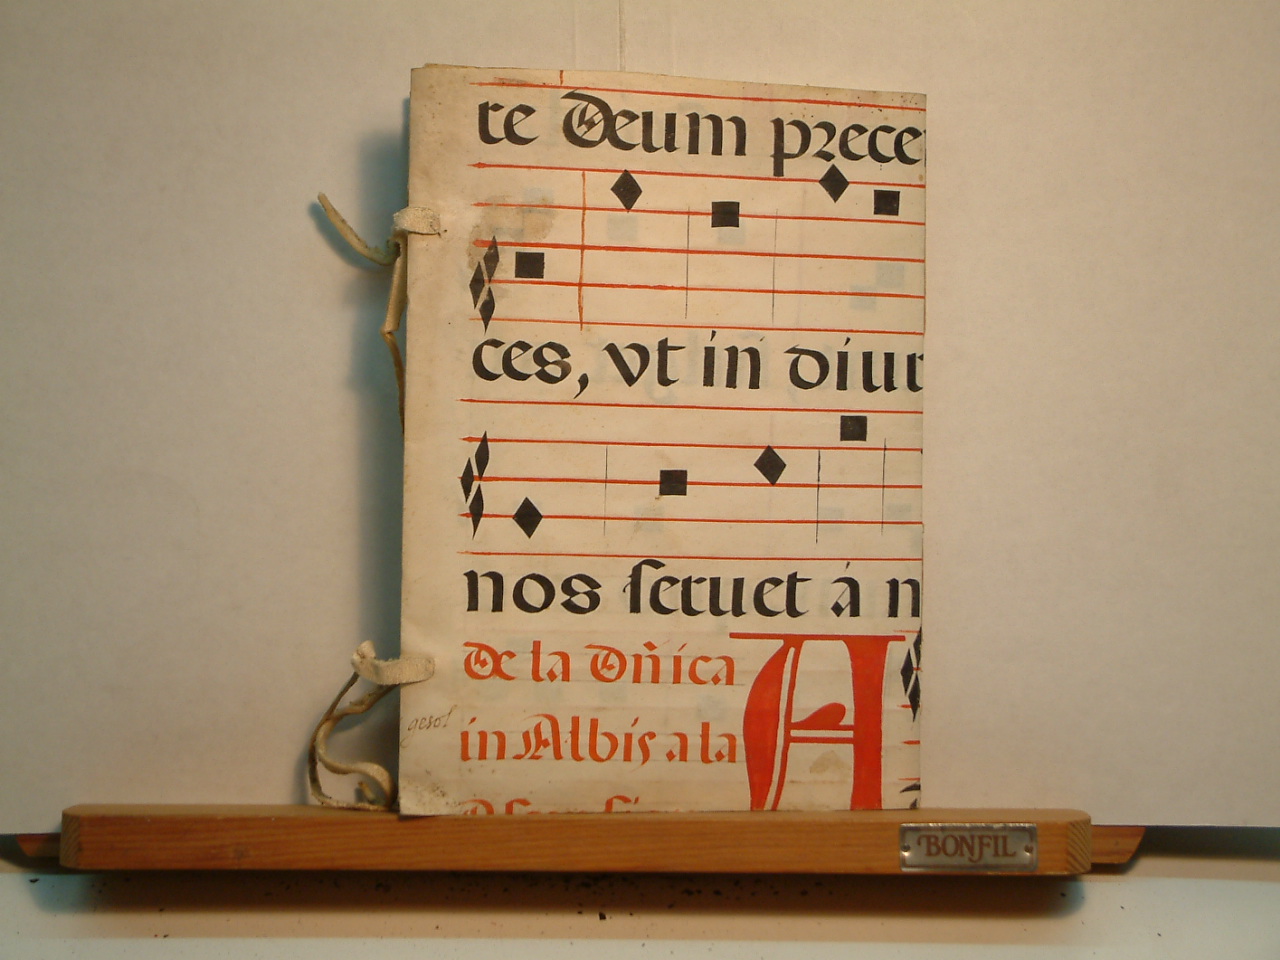 te Deum prece
ces, vt in diur
nos seruet á n
De la Dñica
in Albis a la
A
BONFIL